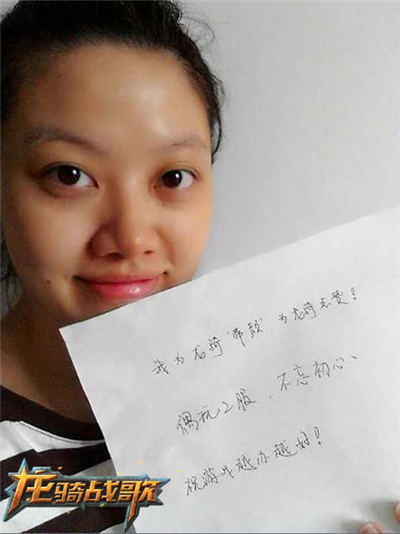 我为龙骑"带颜",为龙骑点赞!
偶玩2服,不忘初心、
祝游戏越办越好!
龙骑战歌